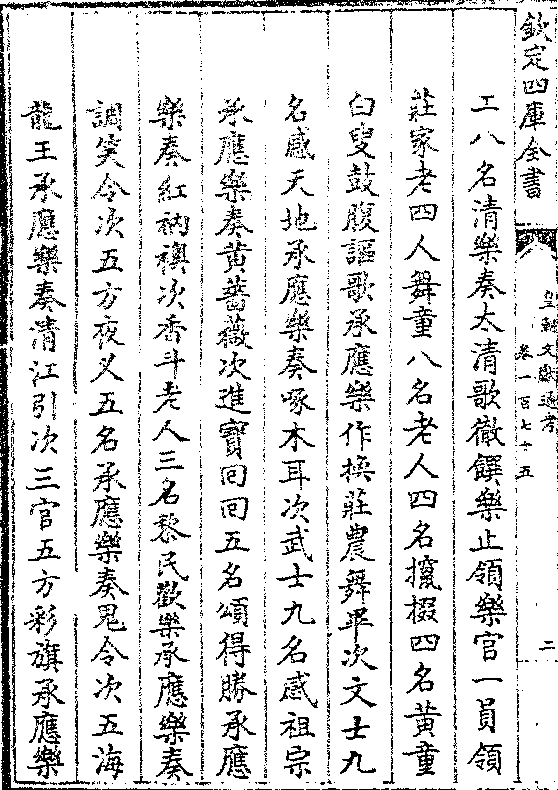 欽定四庫全書
皇朝文獻通考
卷一百七十五
二
工八名清樂奏太清歌徹饌樂止領樂官一員領
莊家老四人舞童八名老人四名攛掇四名黃童
白叟鼓腹謳歌承應樂作換莊農舞畢次文士九
名感天地承應樂奏啄木耳次武士九名感祖宗
承應樂奏黃薔薇次進寶回回五名頌得勝承應
樂奏紅衲襖次香斗老人三名黎民歡樂承應樂奏
調笑令次五方夜叉五名承應樂奏鬼令次五海
龍王承應樂奏清江引次三官五方彩旗承應樂